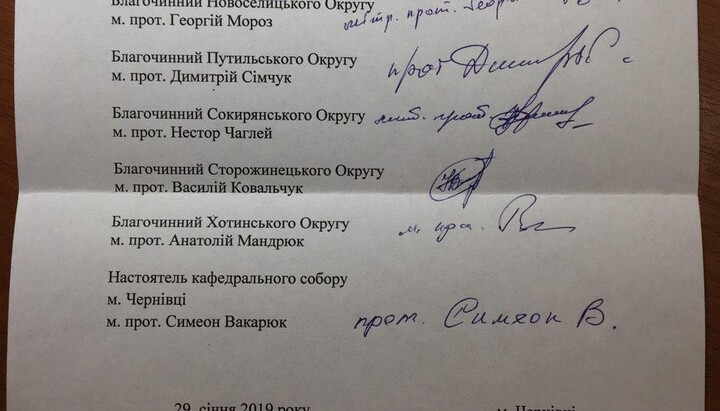 Благочинний Новоселицького Округу
м. прот. Георгій Мороз мітр. прот. Георгій
Благочинний Путильського Округу
м. прот. Димитрій Сімчук прот
Благочинний Сокирянського Округу
м. прот. Нестор Чаглей мит. прот.
Благочинний Сторожинецького Округу
м. прот. Василій Ковальчук
Благочинний Хотинського Округу
м. прот. Анатолій Мандрюк м. про.
Настоятель кафедрального собору
м. Чернівці
м. прот. Симеон Вакарюк прот. Симеон В.
29 січня 2019 року м. Чернівці